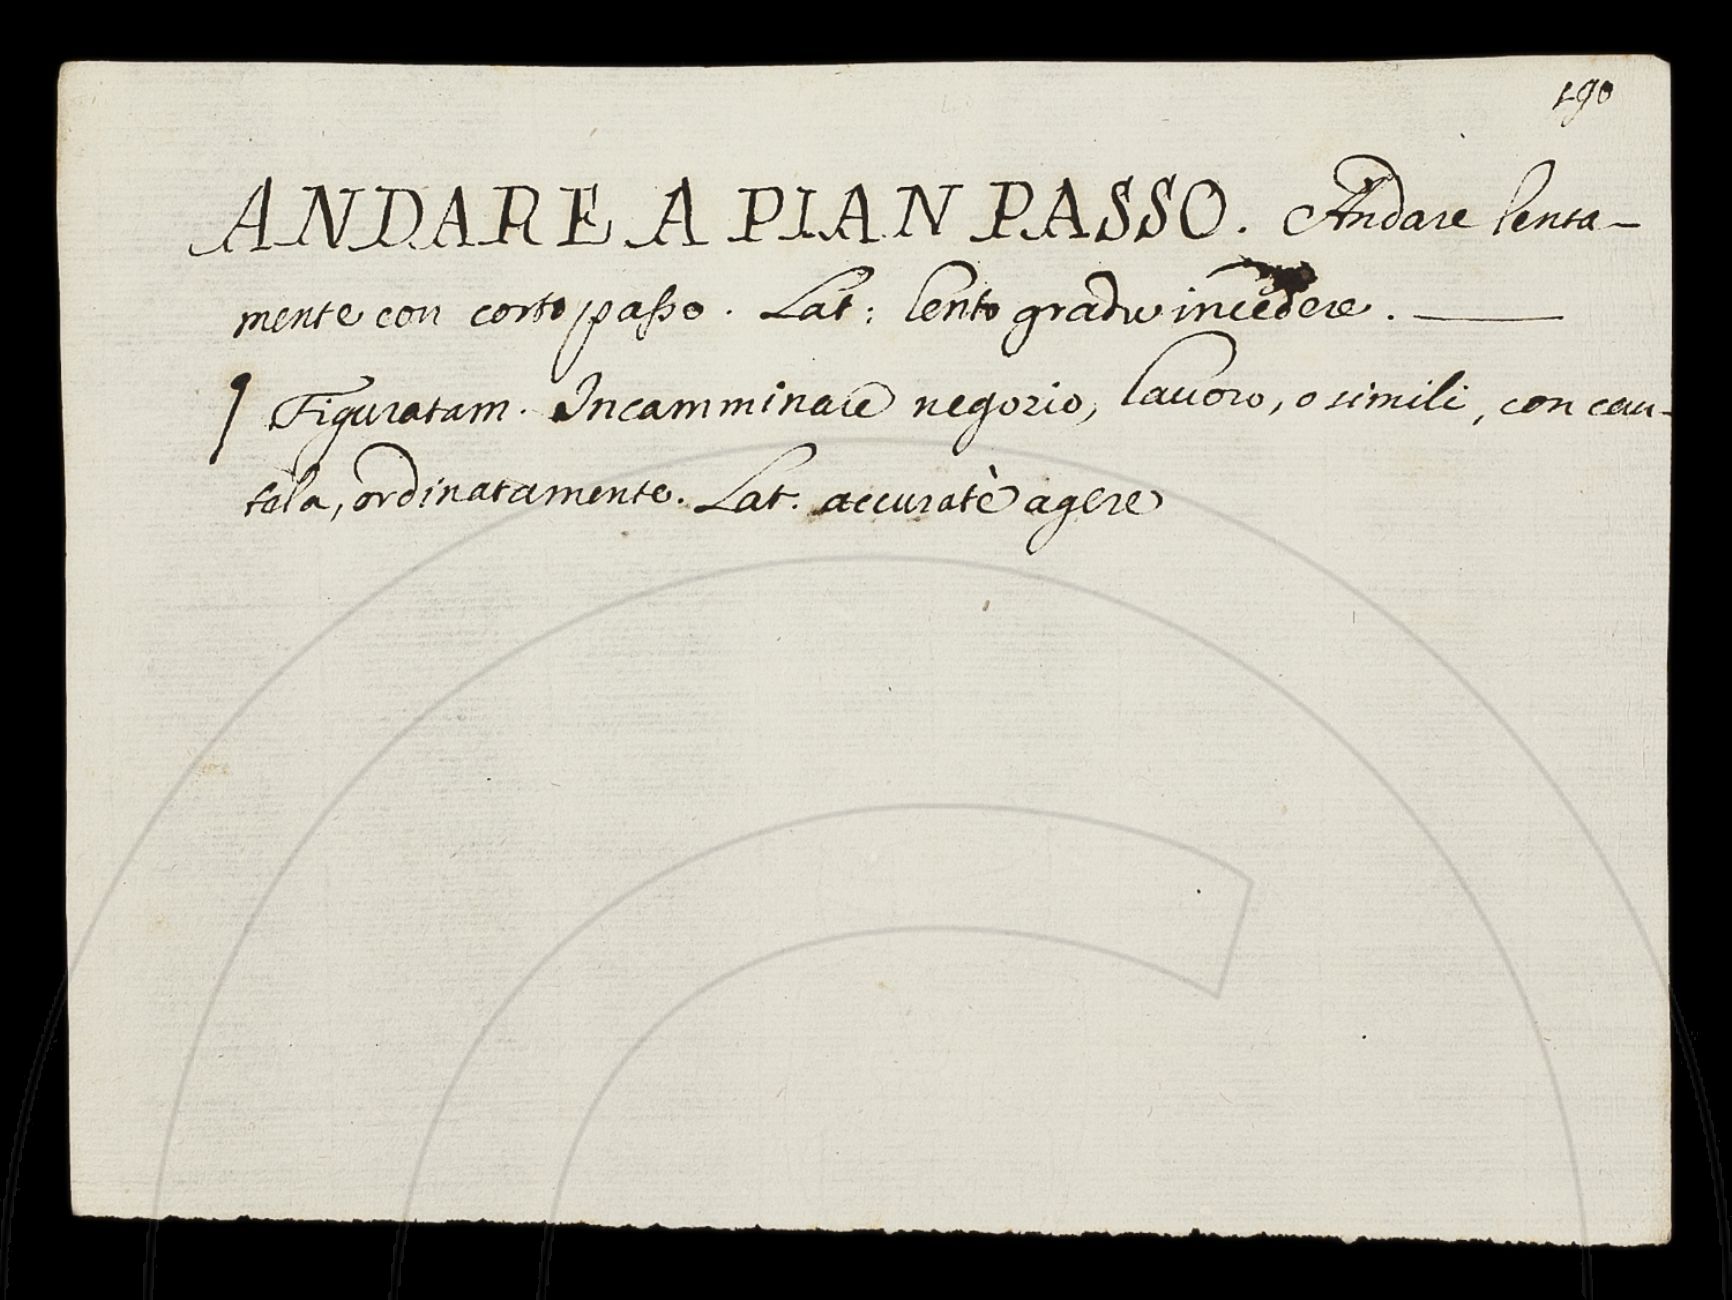 190
ANDARE A PIAN PASSO. Andare lenta-
mente con corto passo. Lat: lento gradu incedere.
¶ Figuratam. Incamminare negozio, lauoro, o simili, con cau-
tela, ordinatamente. Lat. accuratè agere